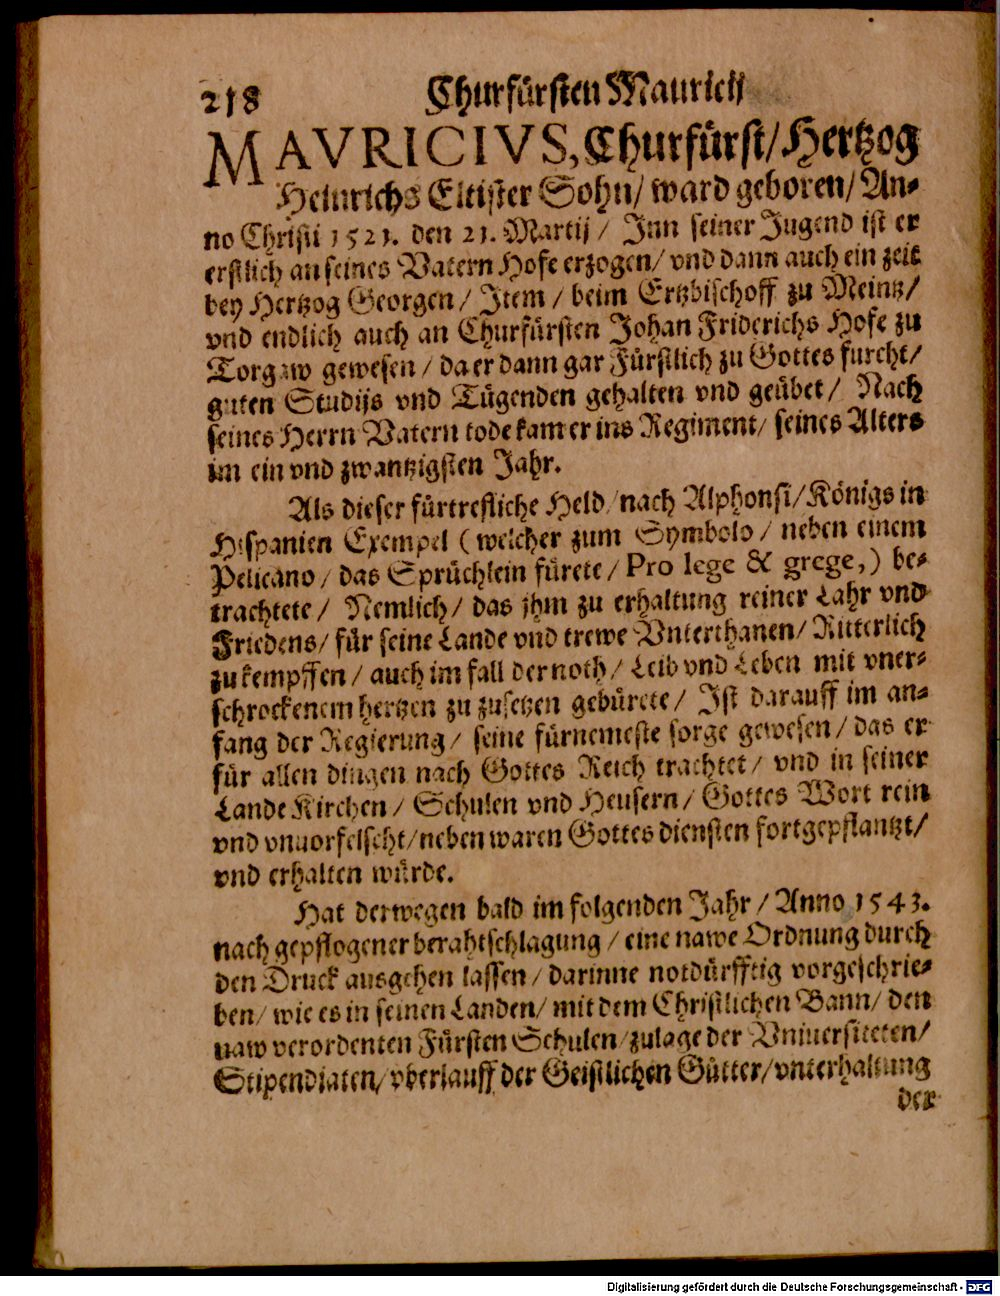 218 Churfürsten Mauricij
MAVRICIVS, Churfürst/ Hertzog
Heinrichs Eltister Sohn/ ward geboren/ An-
no Christi 1521. den 21. Martij / Inn seiner Jugend ist er
erstlich an seines Vatern Hofe erzogen/ vnd dann auch ein zeit
bey Hertzog Georgen/ Item / beim Ertzbischoff zu Meintz/
vnd endlich auch an Churfürsten Johan Friderichs Hofe zu
Torgaw gewesen / da er dann gar Fürstlich zu Gottes furcht/
guten Studijs vnd Tügenden gehalten vnd geübet/ Nach
seines Herrn Vatern tode kam er ins Regiment/ seines Alters
im ein vnd zwantzigsten Jahr.
Als dieser fürtrefliche Held/ nach Alphonsi/ Königs in
Hispanien Exempel (welcher zum Symbolo / neben einem
Pelicano/ das Sprüchlein fürete/ Pro lege & grege,) be-
trachtete/ Nemlich/ das jhm zu erhaltung reiner Lahr vnd
Friedens/ für seine Lande vnd trewe Vnterthanen/ Ritterlich
zu kempffen / auch im fall der noth/ Leib vnd Leben mit vner-
schrockenem hertzen zu zusetzen gebürete/ Ist darauff im an-
fang der Regierung/ seine fürnemeste sorge gewesen/ das er
für allen dingen nach Gottes Reich trachtet/ vnd in seiner
Lande Kirchen/ Schulen vnd Heusern/ Gottes Wort rein
vnd vnuorfelscht/ neben waren Gottes diensten fortgepflantzt/
vnd erhalten würde.
Hat derwegen bald im folgenden Jahr / Anno 1543.
nach gepflogener berahtschlagung / eine nawe Ordnung durch
den Druck ausgehen lassen/ darinne notdürfftig vorgeschrie-
ben/ wie es in seinen Landen/ mit dem Christlichen Bann/ den
naw verordenten Fürsten Schulen/ zulage der Vniuersiteten/
Stipendiaten/ vberlauff der Geistlichen Gütter/ vnterhaltung
der
Digitalisierung gefördert durch die Deutsche Forschungsgemeinschaft - DFG